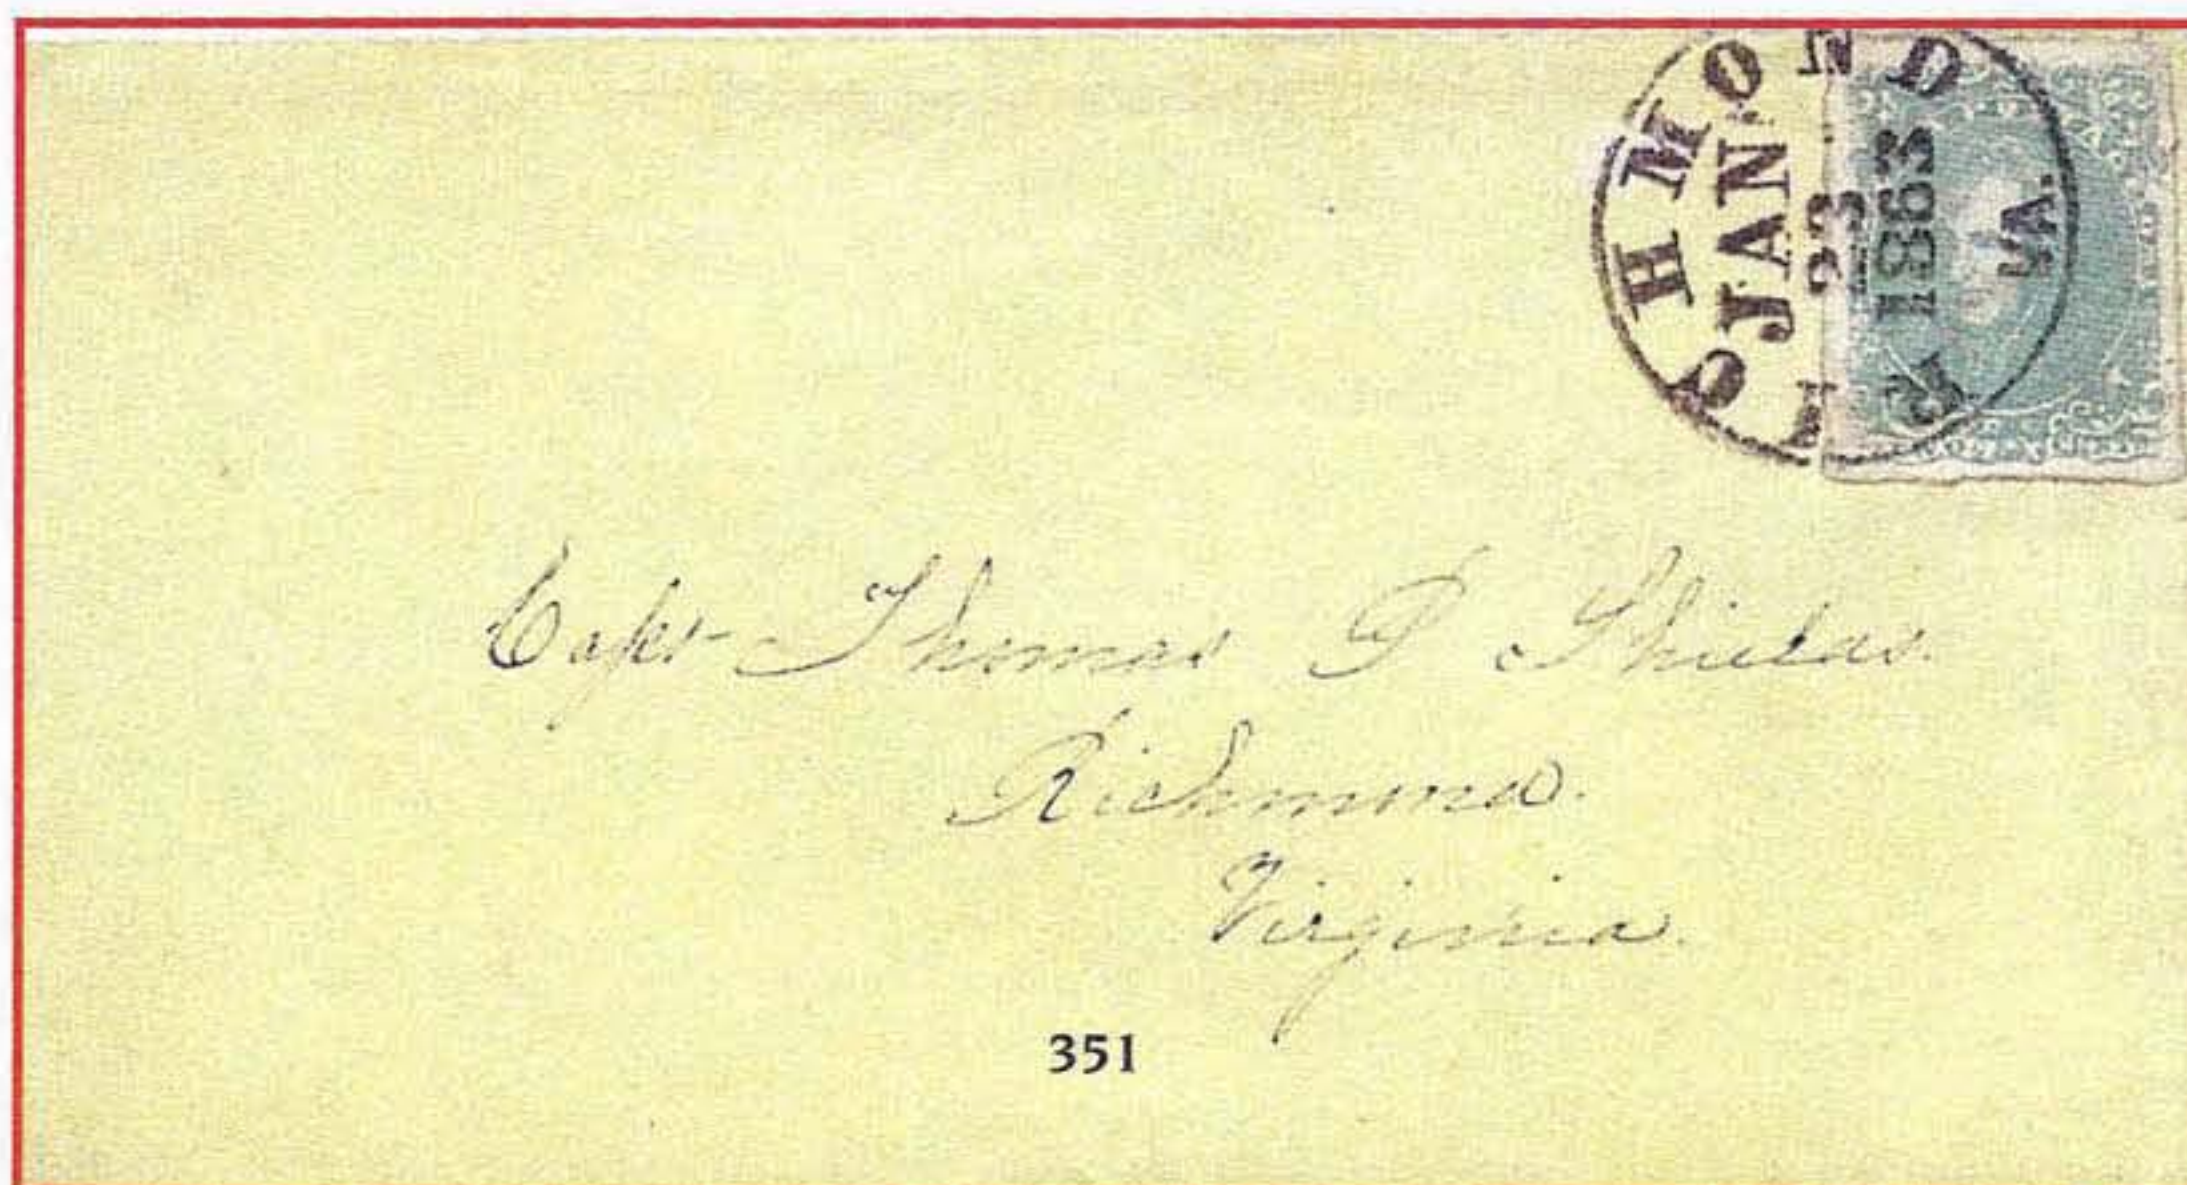 RICHMOND VA.
JAN
23
1863
Capt Thomas P Shields.
Richmond.
Virginia.
351